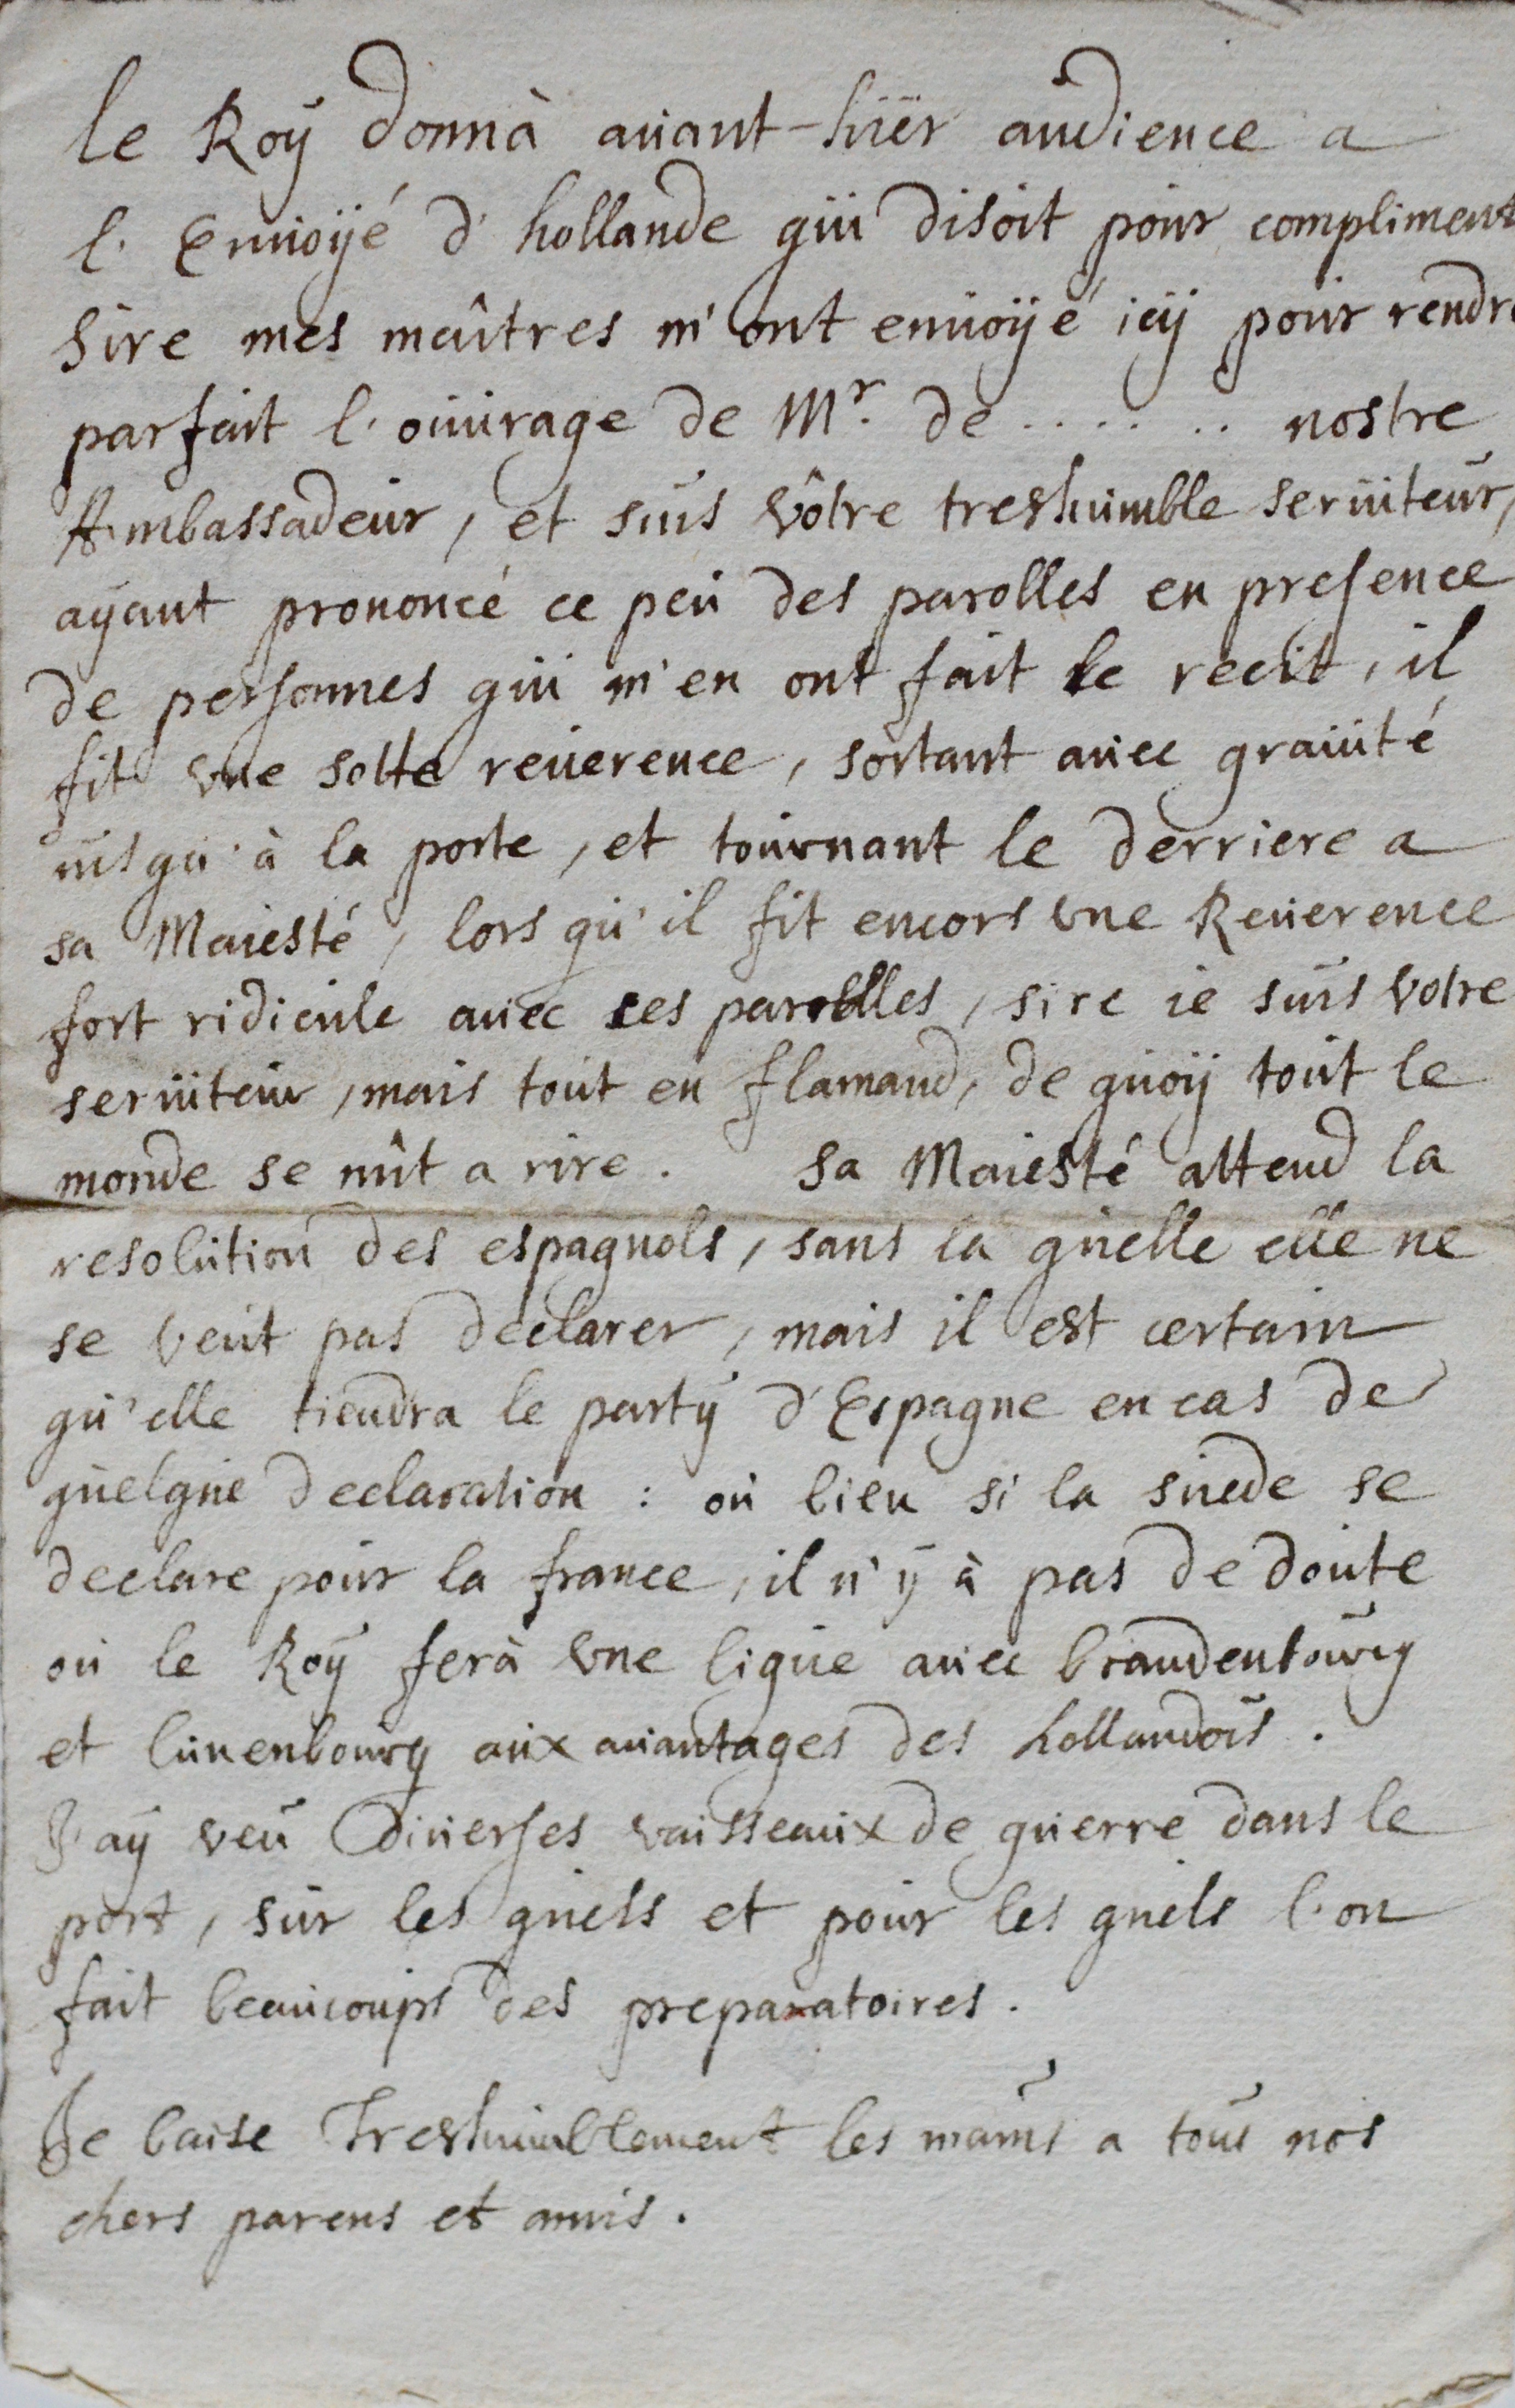 le Roÿ donnà auant-hïer audience a
l'Enuoÿé d'hollande qui disoit pour compliment
Sire mes maîtres m'ont enuoÿé icÿ pour rendre
parfait l'ouurage de Mr. de ...... nostre
Ambassadeur, et suis vôtre treshumble seruiteur,
aÿant prononcé ce peu des parolles en presence
de personnes qui m'en ont fait le recit, il
fit vne sotte reuerence, sortant auec grauité
iusqu'à la porte, et tournant le derriere a
sa Maiesté, lors qu'il fit encors vne Reuerence
fort ridicule auec ces parolles, sire ie suis votre
seruiteur, mais tout en flamand, de quoÿ tout le
monde se mît a rire. Sa Maiesté attend la
resolution des espagnols, sans la quelle elle ne
se veut pas declarer, mais il est certain
qu'elle tiendra le partÿ d'Espagne en cas de
quelque declaration : ou bien si la suede se
declare pour la france, il n'ÿ à pas de doute
ou le Roÿ ferà vne ligue auec brandenbourg
et lunenbourg aux auantages des hollandois.
J'aÿ veu diuerses vaisseaux de guerre dans le
port, sur les quels et pour les quels l'on
fait beaucoups des preparatoires.
Je baise Treshumblement les mains a tous nos
chers parens et amis.